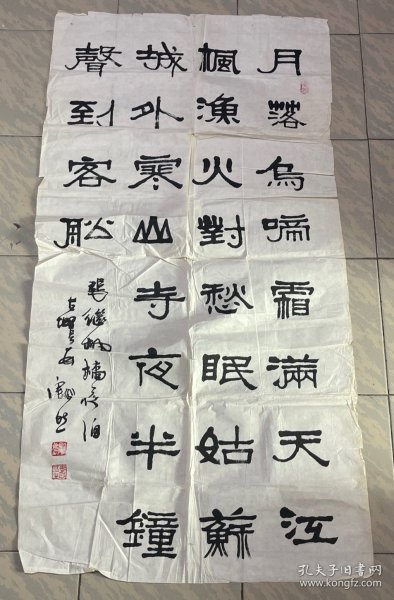 月落烏啼霜滿天江
楓漁火對愁眠姑蘇
城外寒山寺夜半鐘
聲到客舩
張繼楓橋夜泊
孔夫子旧书网
www.kongfz.com